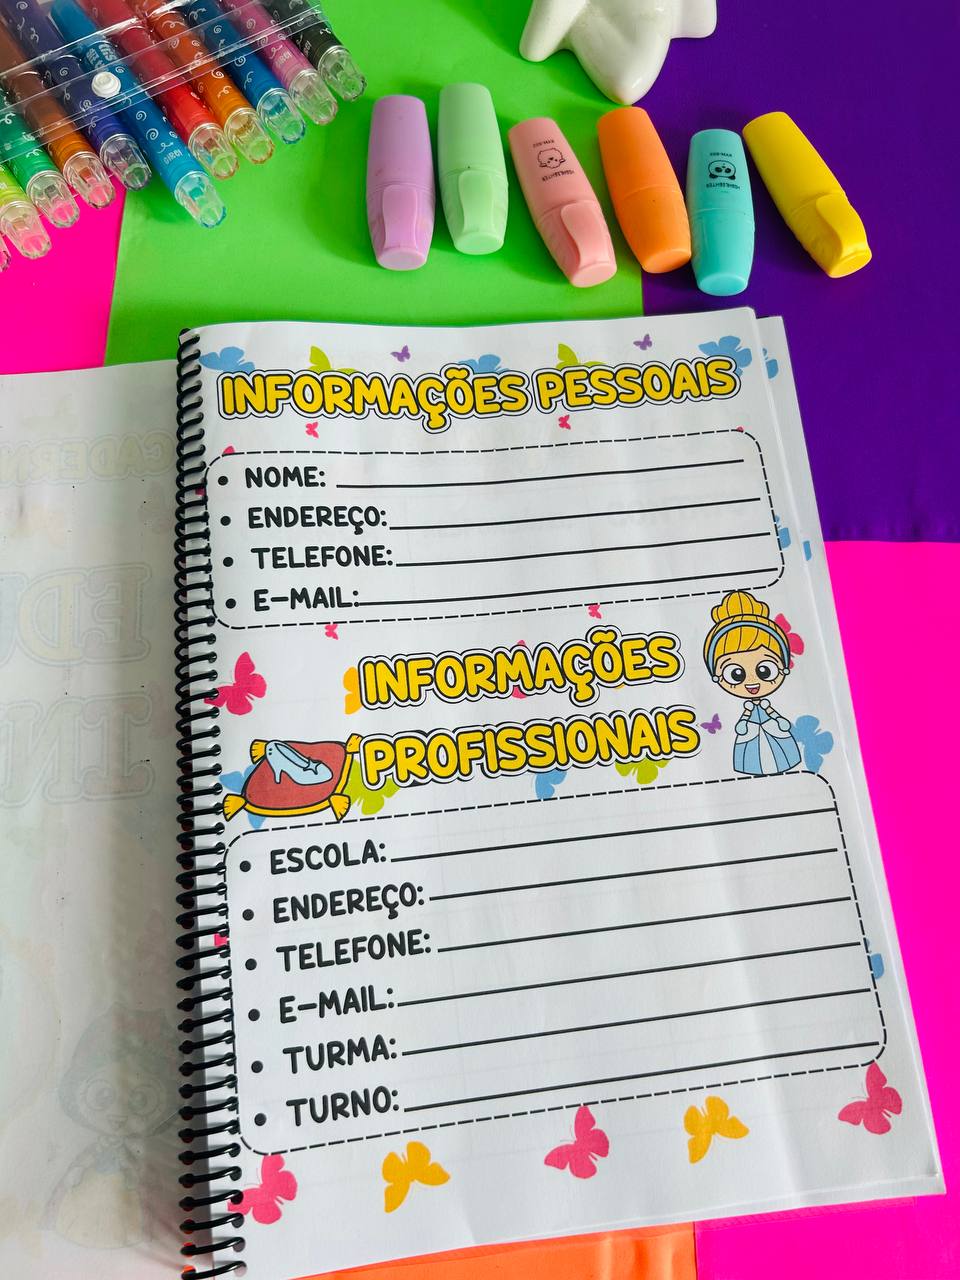 INFORMAÇÕES PESSOAIS
• NOME:
• ENDEREÇO:
• TELEFONE:
• E-MAIL:
INFORMAÇÕES
PROFISSIONAIS
• ESCOLA:
• ENDEREÇO:
• TELEFONE:
• E-MAIL:
• TURMA:
• TURNO: